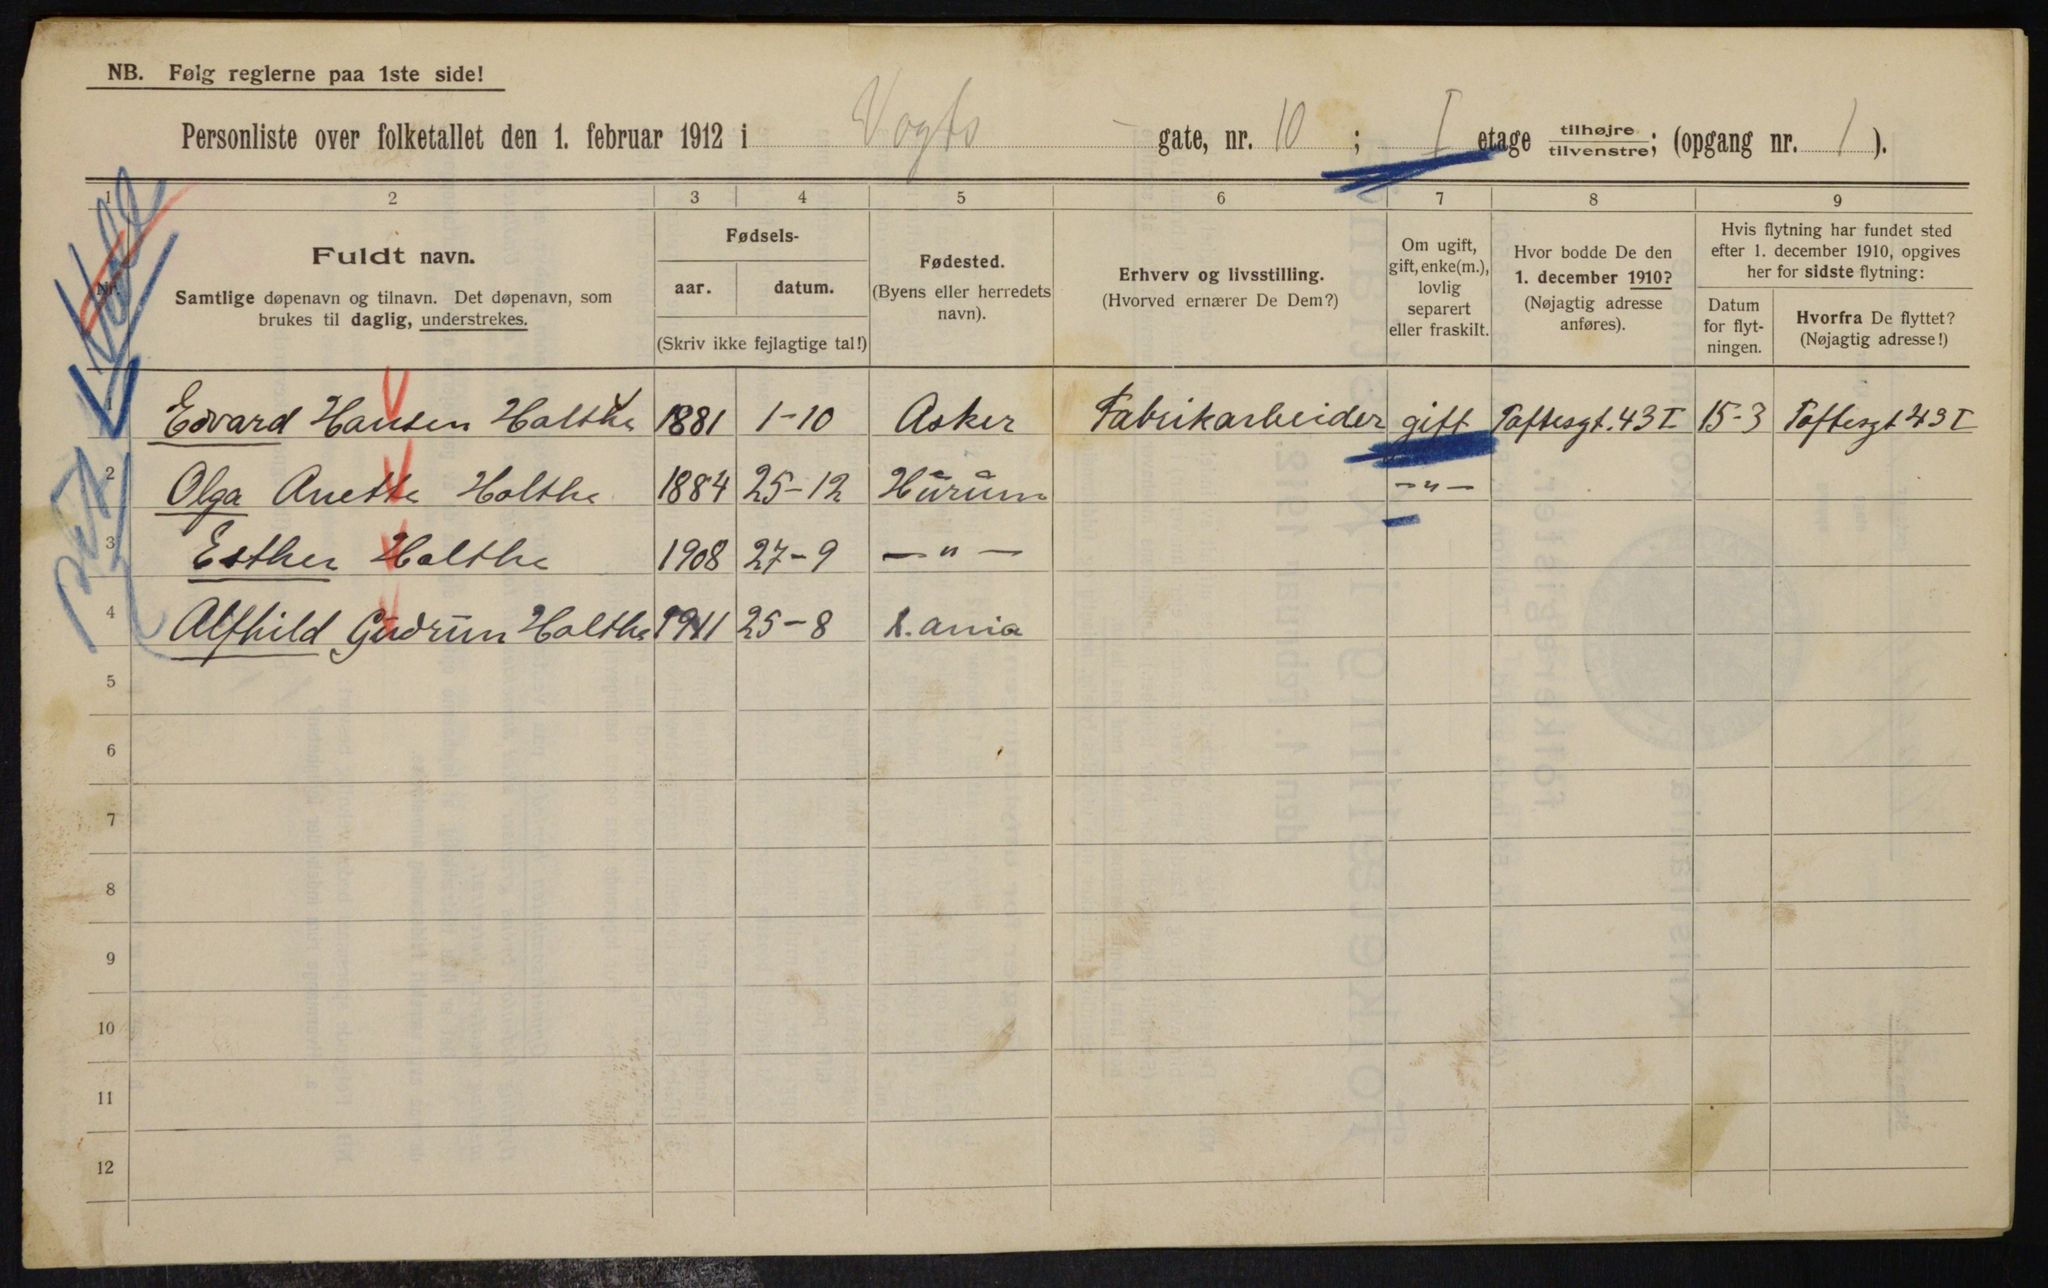 NB. Følg reglerne paa 1ste side!
Personliste over folketallet den 1. februar 1912 i Vogts gate, nr. 10 ; I etage tilhøjre/tilvenstre; (opgang nr. 1 ).
1 2 3 4 5 6 7 8 9
Nr.
Fuldt navn.
Samtlige døpenavn og tilnavn. Det døpenavn, som
brukes til daglig, understrekes.
Fødsels-
aar. datum.
(Skriv ikke fejlagtige tal!)
Fødested.
(Byens eller herredets
navn).
Erhverv og livsstilling.
(Hvorved ernærer De Dem?)
Om ugift,
gift, enke(m.),
lovlig
separert
eller fraskilt.
Hvor bodde De den
1. december 1910?
(Nøjagtig adresse
anføres).
Hvis flytning har fundet sted
efter 1. december 1910, opgives
her for sidste flytning:
Datum
for flyt-
ningen.
Hvorfra De flyttet?
(Nøjagtig adresse!)
1 Edvard Hansen Holthe 1881 1-10 Asker Fabrikarbeider gift Toftesgt. 43 I 15-3 Toftesgt 43 I
2 Olga Anette Holthe 1884 25-12 Hurum -"-
3 Esther Holthe 1908 27-9 -"-
4 Alfhild Gudrun Holthe 1911 25-8 K.ania
5
6
7
8
9
10
11
12